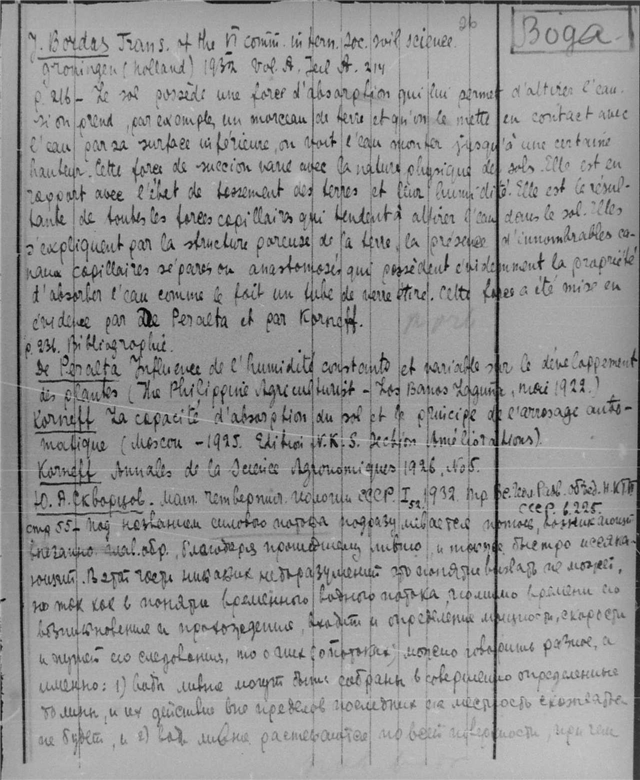 26
Вода.
J. Bordas Trans. of the VI comm. intern. Soc. soil science.
Groningen (Holland) 1932 Vol. A. Teil A. 214
p. 216 — Le sol possède une force d'absorption qui lui permet d'attirer l'eau.
si on prend, par exemple, un morceau de terre et qu'on le mette en contact avec
l'eau par sa surface inférieure, on voit l'eau monter jusqu'à une certaine
hauteur. Cette force de succion varie avec la nature physique des sols. Elle est en
rapport avec l'état de tassement des terres et leur humidité. Elle est le résul-
tante de toutes les forces capillaires qui tendent à attirer l'eau dans le sol. Elles
s'expliquent par la structure poreuse de la terre, la présence d'innombrables ca-
naux capillaires séparés ou anastomosés qui possèdent évidemment la propriété
d'absorber l'eau comme le fait un tube de verre étiré. Cette force a été mise en
évidence par De Peralta et par Korneff.
p. 231. Bibliographie.
De Peralta Influence de l'humidité constante et variable sur le développement
des plantes (The Philippine Agriculturist — Los Banos Laguna, mai 1922.)
Korneff La capacité d'absorption du sol et le principe de l'arrosage auto-
matique (Moscou — 1925. Edition N.K.S. Section Améliorations).
Korneff Annales de la Science Agronomiques 1926, No 5.
Ю. А. Скворцов. Мат. четвертич. геологии СССР. I, 1932. Тр. Вс. Геол. Разв. объед. НКТП
СССР. в. 225.
стр 55 — под названием силового потока подразумевается поток, возникающий
внезапно обр., благодаря прошедшему ливню, и также быстро иссяка-
ющий. В этой части никаких недоразумений это понятие вызвать не может,
но так как в понятие временного водного потока помимо времени его
возникновение и прохождение, входит и определение мощности, скорости
и путей его следования, то о них (о потоках) можно говорить разное, а
именно: 1) воды ливня могут быть собраны в совершенно определенные
долины, и их действие вне пределов последних на местность сказываться
не будет, и 2) воды ливня растекаются по всей поверхности, при чем